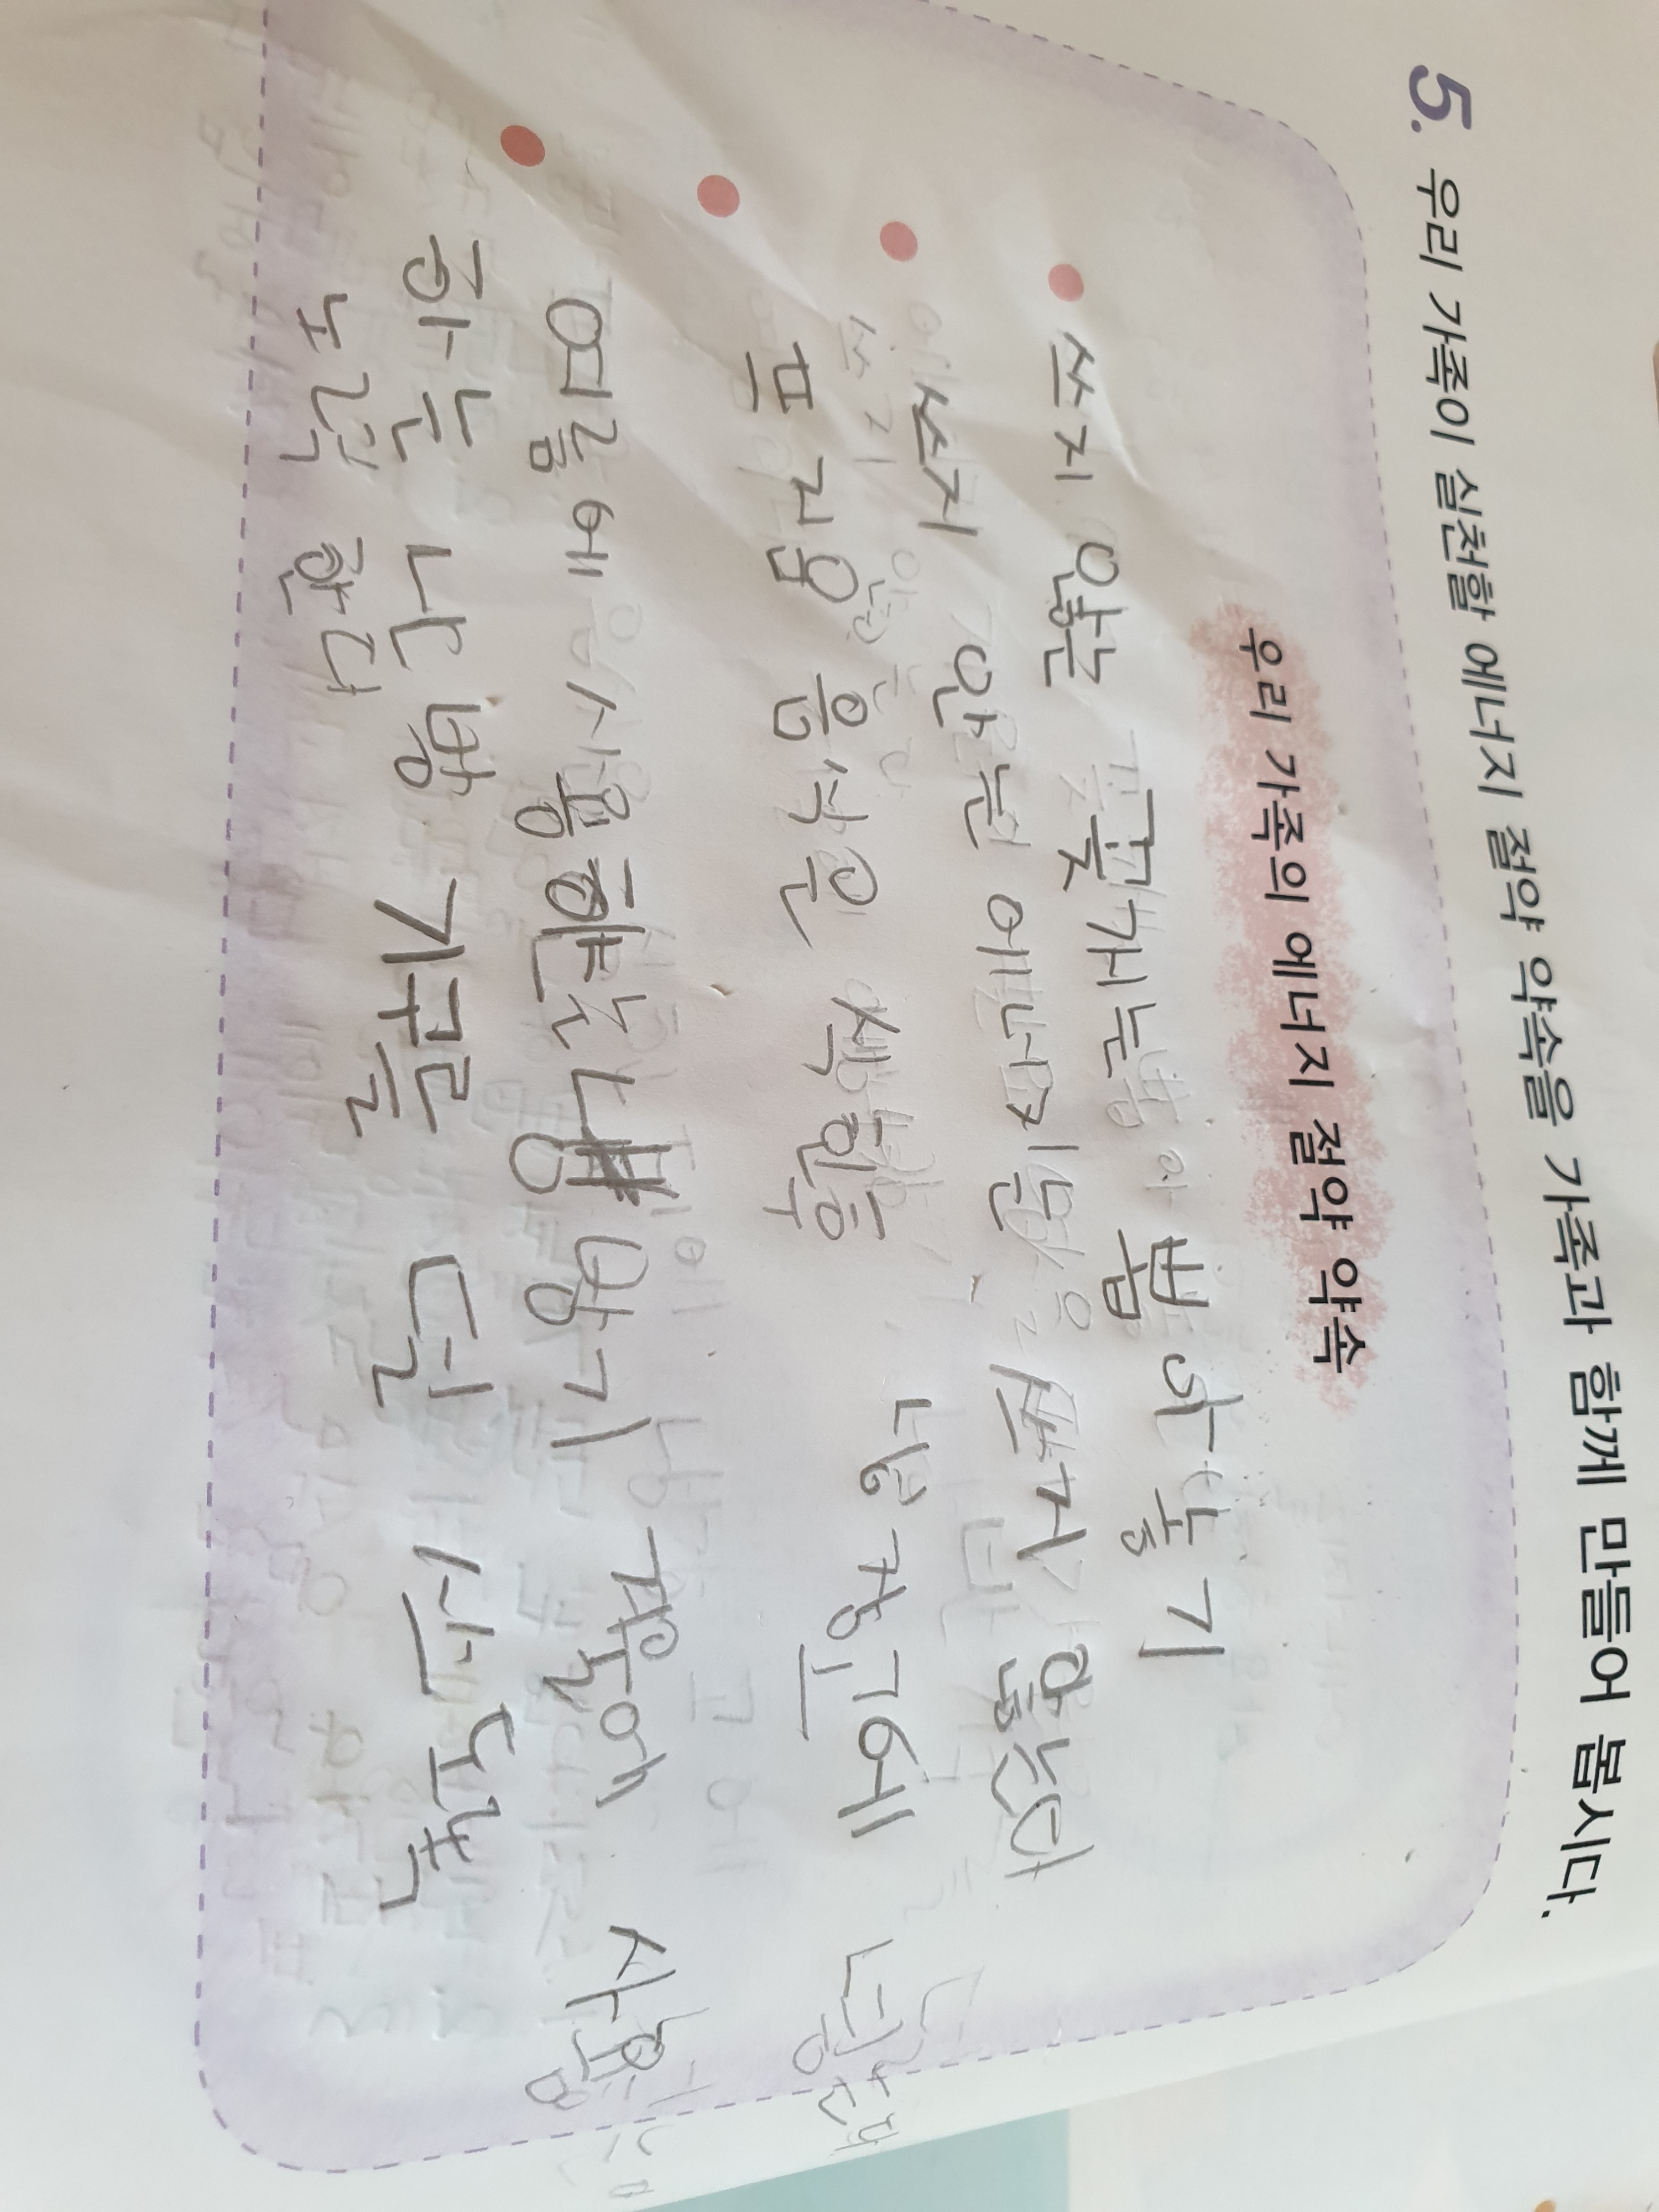 5. 우리 가족이 실천할 에너지 절약 약속을 가족과 함께 만들어 봅시다.
우리 가족의 에너지 절약 약속
쓰지 않는 꽂개는 뽑아 놓기
쓰지 안는 에너지 쓰지 않는다
프라임 음식은 냉장고에
여름에 사용한 냉방기 겨울에 사용
하는 난방 기구를 덜 쓰도록
노력 한다